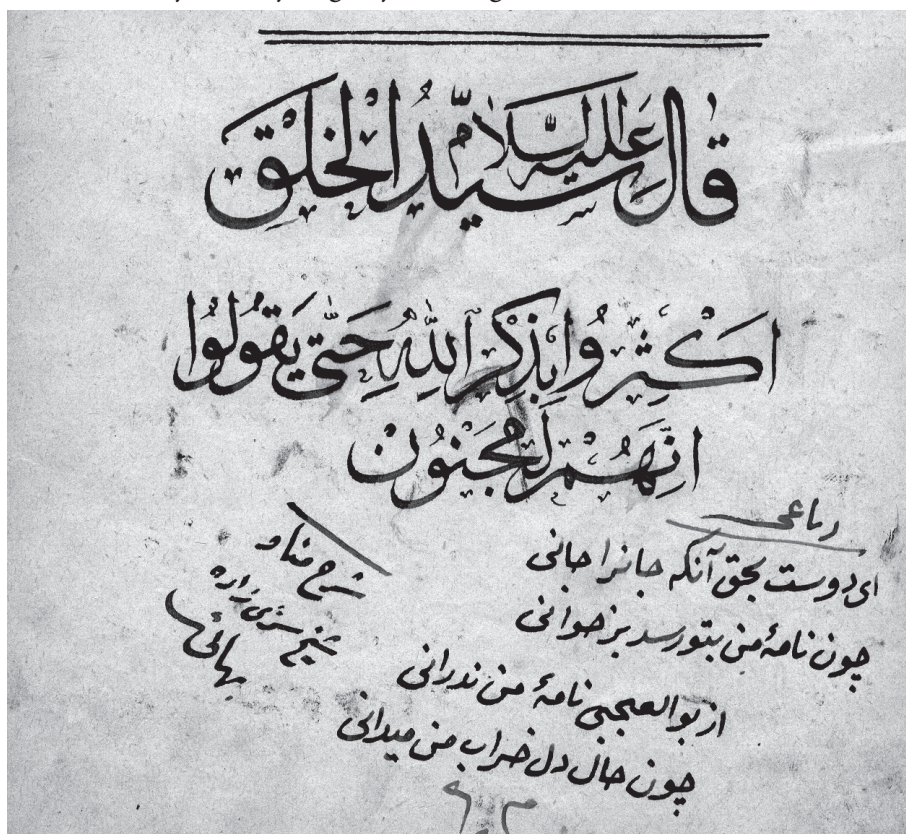 قَالَ عَلَيْهِ السَّلَامُ سَيِّدُ الْخَلْقِ
اَكْثِرُوا بِذِكْرِ اللّٰهِ حَتّٰى يَقُولُوا
اِنَّهُمْ لَمَجْنُونٌ
رباعی
ای دوست بحق آنکه جانرا جانی
چون نامهٔ من بتو رسد برخوانی
از بوالعجبی نامهٔ من ندرانی
چون حال دل خراب من میدانی
شرح
شیخ
بهائی